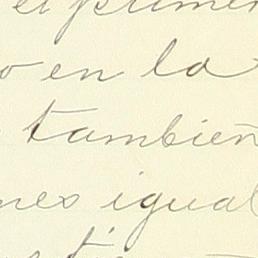 el primer
o en la
tambien
nes igual